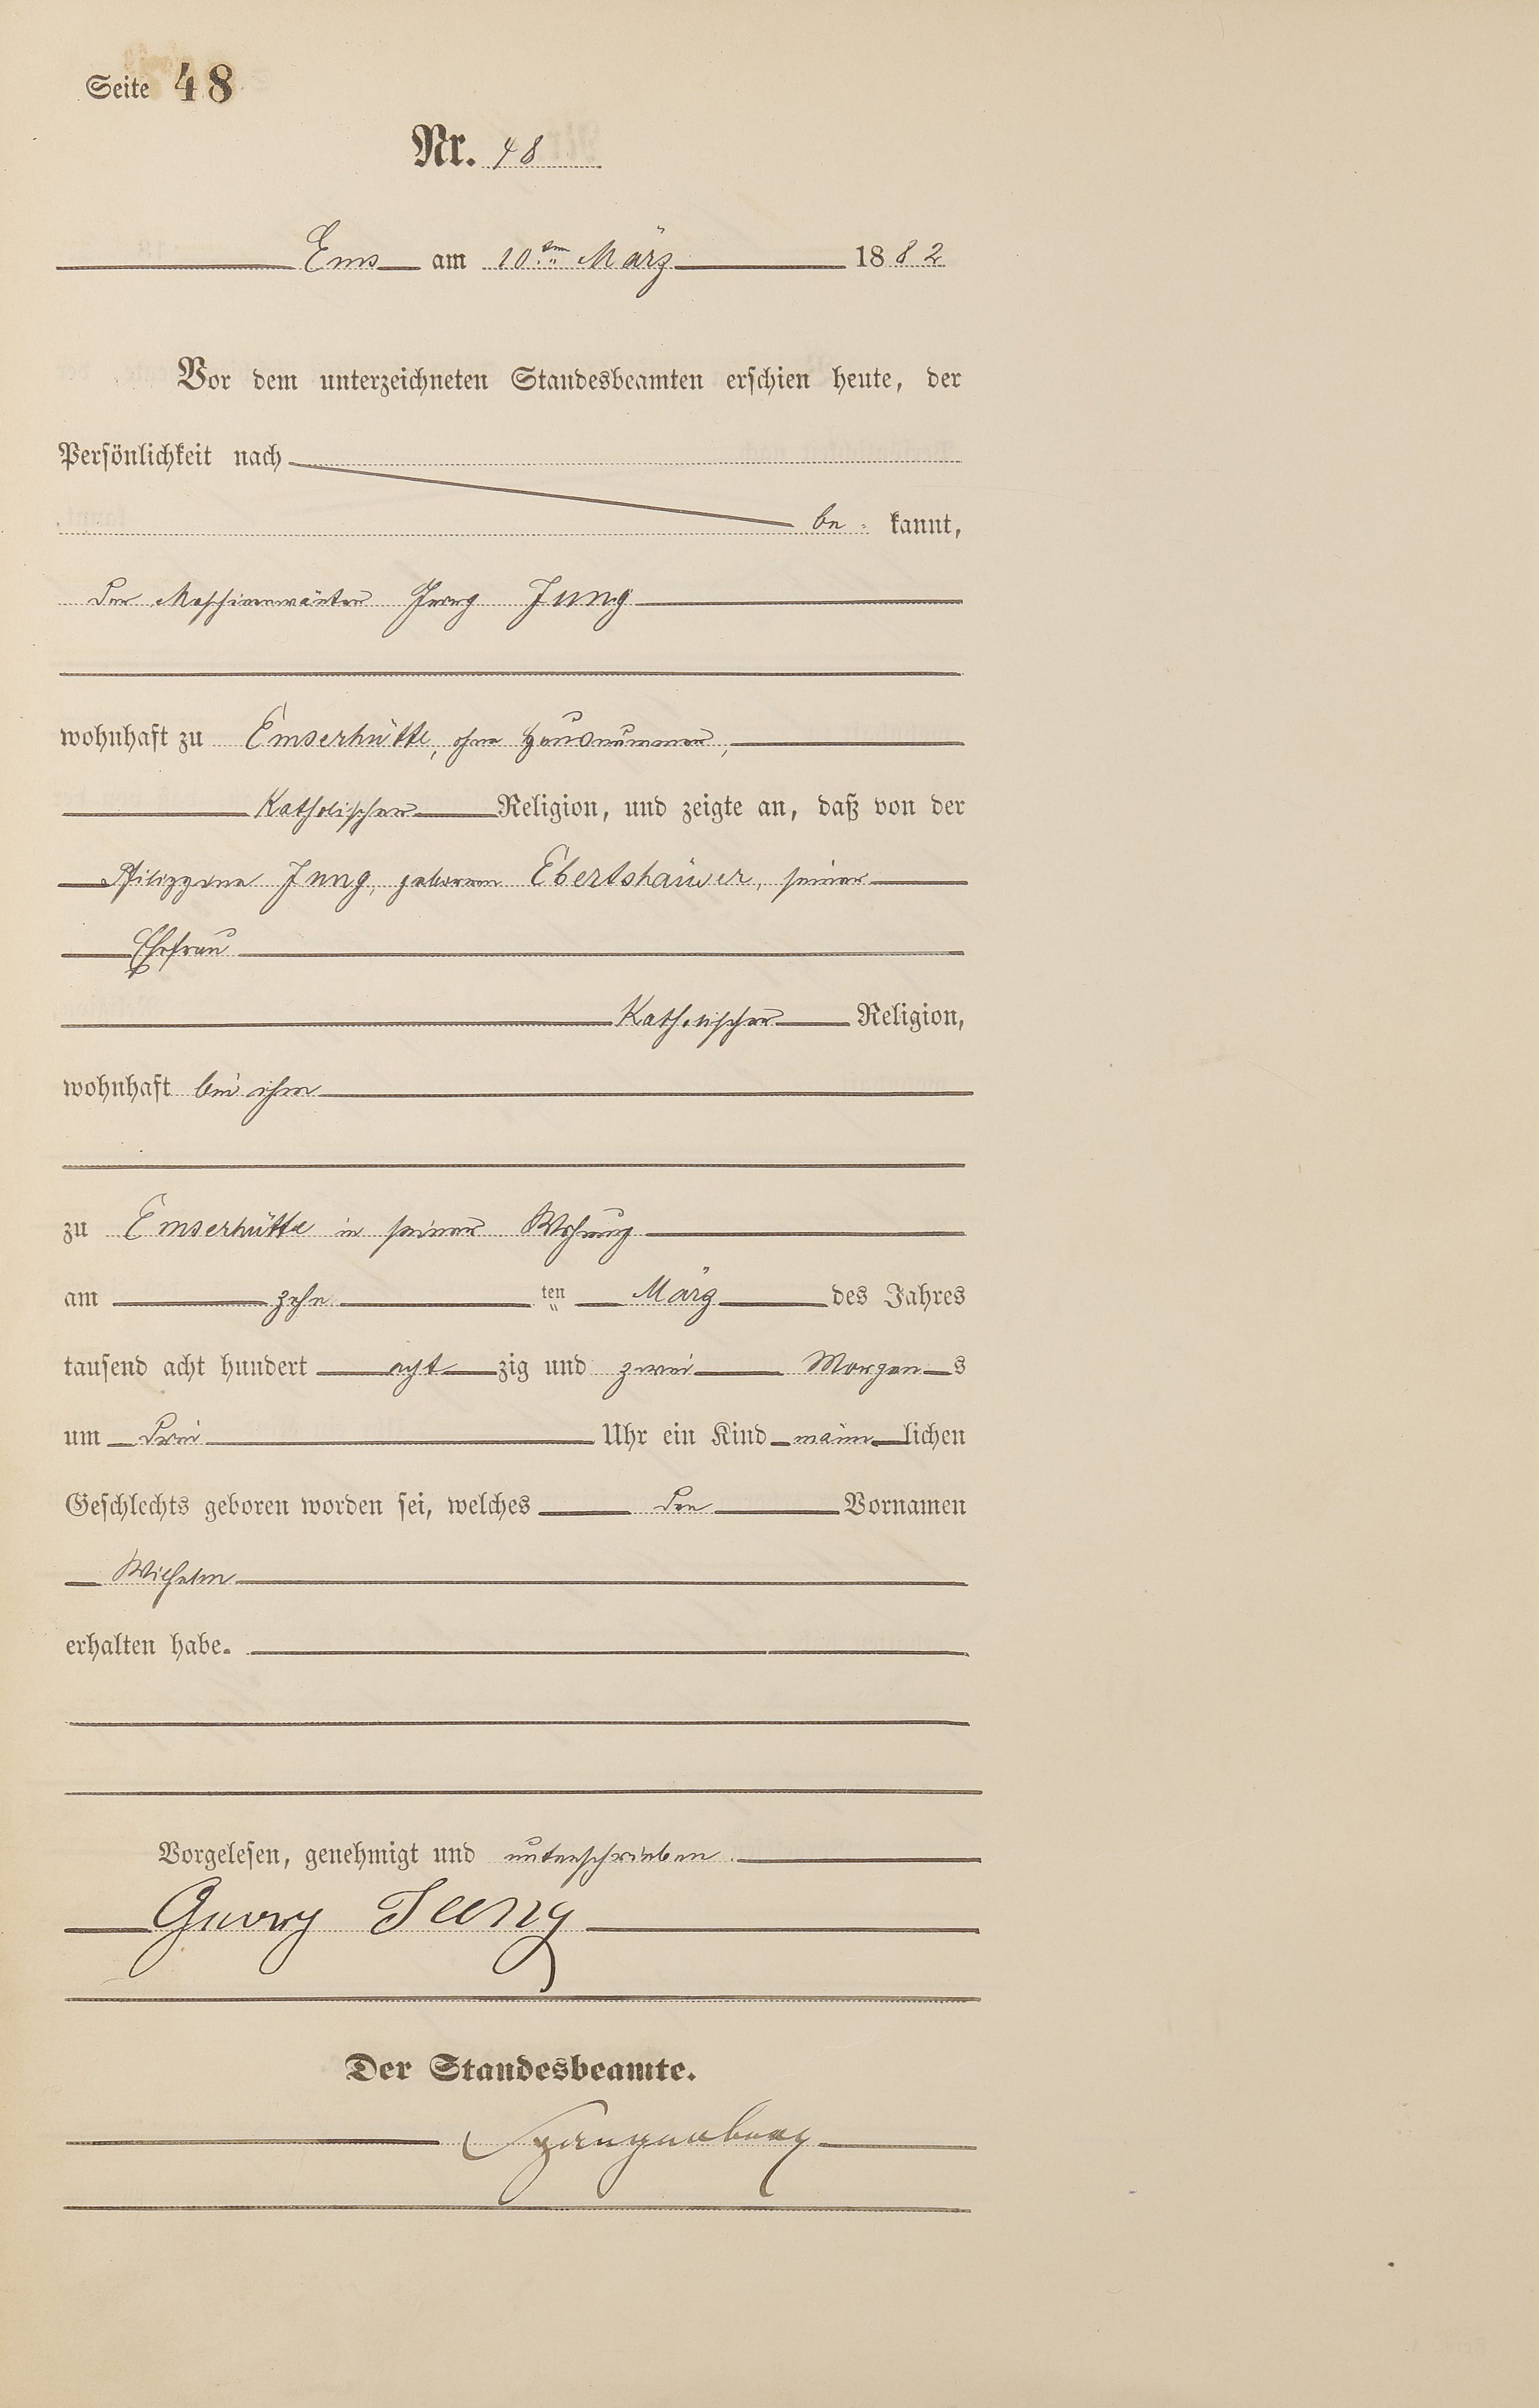 Seite 48
Nr. 48
Ems am 10ten März 1882
Vor dem unterzeichneten Standesbeamten erschien heute, der
Persönlichkeit nach
be= kannt,
der Maschinenwärter Georg Jung
wohnhaft zu Emserhütte, ohne Hausnummer,
Katholischer Religion, und zeigte an, daß von der
Philippine Jung, geborenen Ebertshäuser, seiner
Ehefrau
Katholischer Religion,
wohnhaft bei ihm
zu Emserhütte in seiner Wohnung
am zehn ten März des Jahres
tausend acht hundert acht zig und zwei Morgen s
um drei Uhr ein Kind männ lichen
Geschlechts geboren worden sei, welches den Vornamen
Wilhelm
erhalten habe.
Vorgelesen, genehmigt und unterschrieben.
Georg Jung
Der Standesbeamte.
Spangenberg